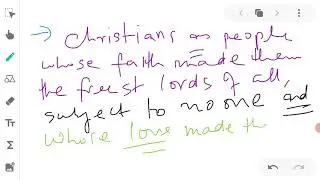 → Christians as people
whose faith made them
the freest lords of all,
subject to no one, and
whose love made th